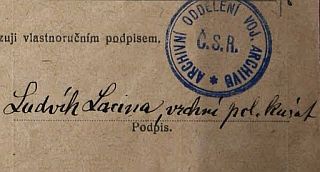 zuji vlastnoručním podpisem.
ARCHIVNÍ ODDĚLENÍ VOJ. ARCHIVU
Č.S.R.
Ludvík Lacina, vrchní pol.
Podpis.